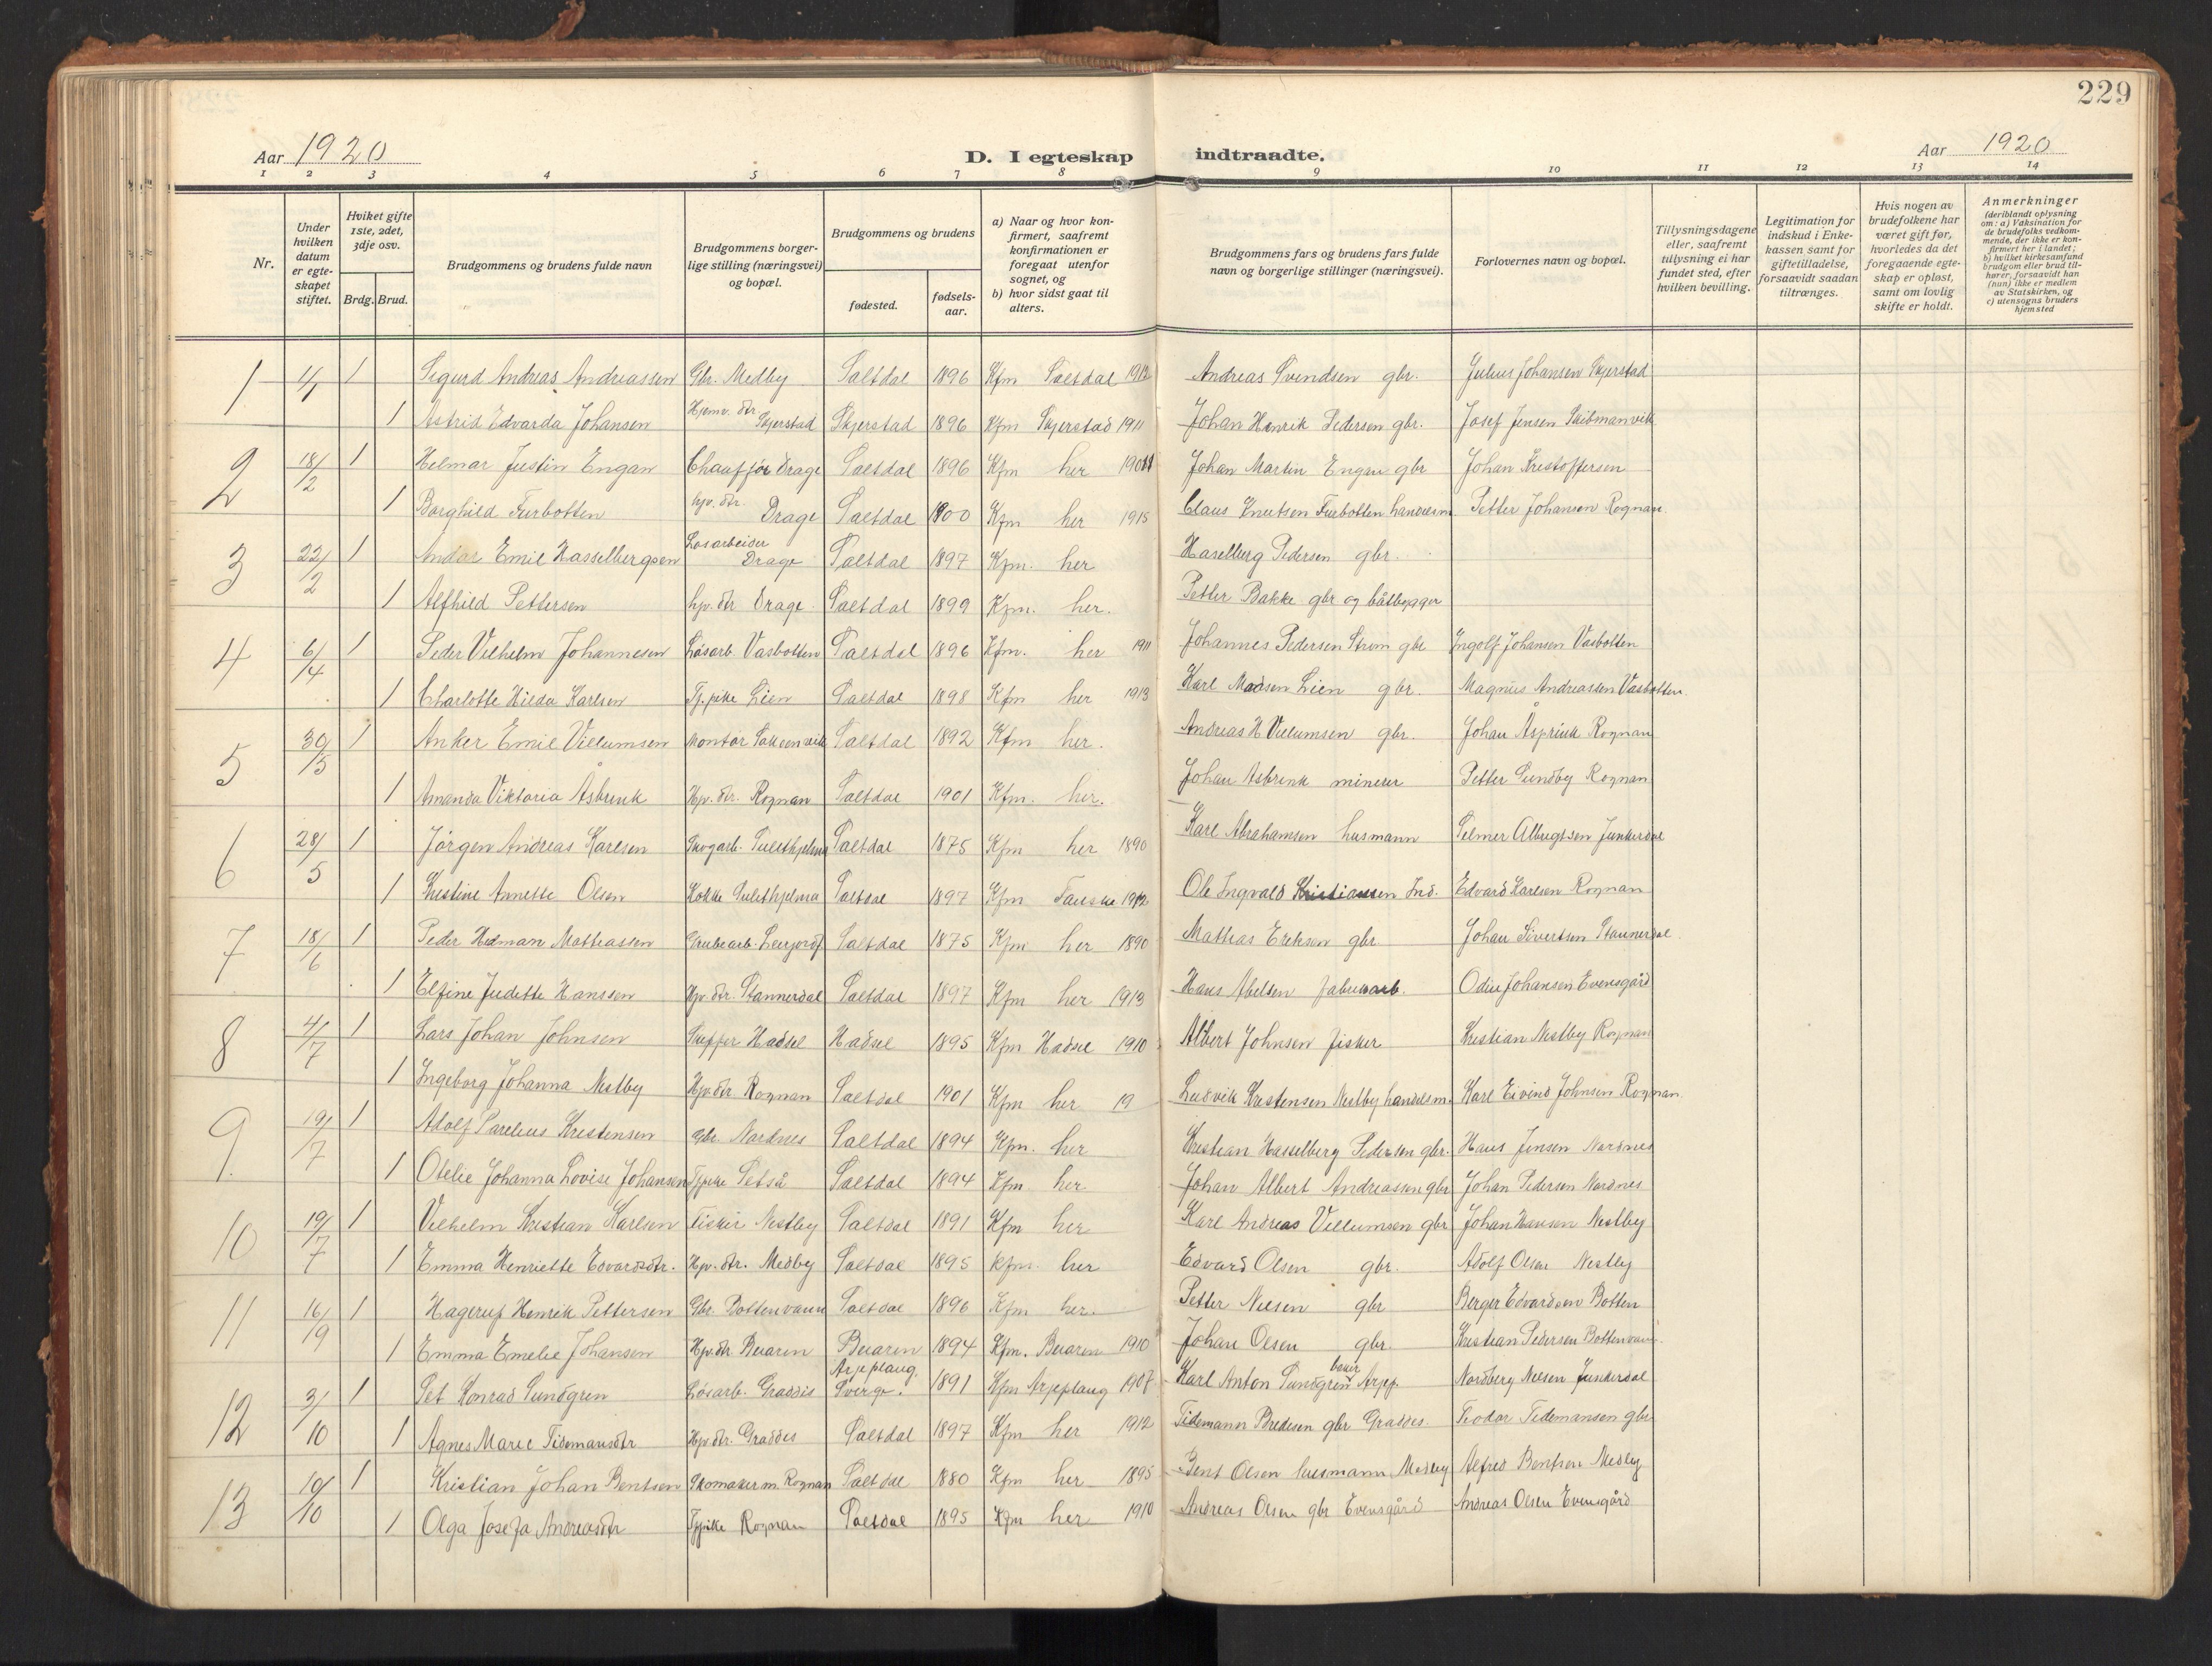 229
Aar 1920 D. I egteskap indtraadte. Aar 1920
1 2 3 4 5 6 7 8 9 10 11 12 13 14
Nr.
Under hvilken datum er egteskapet stiftet.
Hviket gifte 1ste, 2det, 3dje osv.
Brdg. Brud.
Brudgommens og brudens fulde navn
Brudgommens borgerlige stilling (næringsvei) og bopæl.
Brudgommens og brudens
fødested.
fødselsaar.
a) Naar og hvor konfirmert, saafremt konfirmationen er foregaat utenfor sognet, og
b) hvor sidst gaat til alters.
Brudgommens fars og brudens fars fulde navn og borgerlige stillinger (næringsvei).
Forlovernes navn og bopæl.
Tillysningsdagene eller, saafremt tillysning ei har fundet sted, efter hvilken bevilling.
Legitimation for indskud i Enkekassen samt for giftetilladelse, forsaavidt saadan tiltrænges.
Hvis nogen av brudefolkene har været gift før, hvorledes da det foregaaende egteskap er opløst, samt om lovlig skifte er holdt.
Anmerkninger (deriblandt oplysning om: a) Vaksination for de brudefolks vedkommende, der ikke er konfirmert her i landet; b) hvilket kirkesamfund brudgom eller brud tilhører, forsaavidt han (nun) ikke er medlem av Statskirken, og c) utensogns bruders hjemsted
1 4/1 1 Sigurd Andreas Andreassen Gbr. Medby Saltdal 1896 Kfm Saltdal 1912 Andreas Svendsen gbr. Julius Johansen Skjerstad
1 Astrid Edvarda Johansen Hjemv. dtr Skjerstad Skjerstad 1896 Kfm Skjerstad 1911 Johan Henrik Pedersen gbr. Josef Jensen Skibmanvik
2 18/2 1 Helmar Justin Engan Chauffjør Drage Saltdal 1896 Kfm her Johan Martin Engan gbr Johan Kristoffersen
1 Borghild Furbotten hjv. dtr. Drage Saltdal 1900 Kfm her 1915 Claus Knutsen Furbotten handelsm Petter Johansen Rognan
3 22/2 1 Andor Emil Hasselbergsen Løsarbeider Drage Saltdal 1897 Kfm. her Haselberg Pedersen gbr.
1 Alfhild Pettersen hjv. dtr Drage Saltdal 1899 Kfm. her. Petter Bakke gbr og båtbygger
4 6/4 1 Peder Vilhelm Johannesen Løsarb. Vasbotten Saltdal 1896 Kfm. her 1911 Johannes Pedersen Strøm gbr Ingolf Johansen Vasbotten
1 Charlotte Hilda Karlsen Tj.pike Lien Saltdal 1898 Kfm her 1913 Karl Madsen Lien gbr. Magnus Andreassen Vasbotten
5 30/5 1 Anker Emil Villumsen Montør Saltdal 1892 Kfm her. Andreas H Villumsen gbr. Johan Åsprink Rognan
1 Amanda Viktoria Åsbrink Hjv. dtr. Rognan Saltdal 1901 Kfm. her. Johan Asbrink minerer Petter Sundby Rognan
6 28/5 1 Jørgen Andreas Karlsen Skogarb. Sulithjelma Saltdal 1875 Kfm her 1890 Karl Abrahamsen husmann Selmer Albrigtsen Junkerdal
1 Kristine Annette Olsen Kokke Sulithjelma Saltdal 1897 Kfm Fauske 1912 Ole Ingvald Kristiansen Ind. Edvard Karlsen Rognan
7 18/6 1 Peder Hedman Mathiassen Grubearb. Saltdal 1875 Kfm her 1890 Mathias Eriksen gbr. Johan Sivertsen Stamnerdal
1 Elfine Judette Hanssen Hjv. dtr. Stamnerdal Saltdal 1897 Kfm her 1913 Hans Abelsen Odin Johansen Evensgård
8 4/7 1 Lars Johan Johnsen Skipper Hadsel Hadsel 1895 Kfm Hadsel 1910 Albert Johnsen fisker Kristian Nestby Rognan
1 Ingeborg Johanna Nestby Hjv. dtr Rognan Saltdal 1901 Kfm her 19 Ludvik Kristensen Nestby handelsm. Karl Eivind Johnsen Rognan
9 19/7 1 Adolf Parelius Kristensen Gbr. Nordnes Saltdal 1894 Kfm. her Kristian Hasselberg Pedersen gbr. Hans Jensen Nordnes
1 Otelie Johanna Lovise Johansen Tjpike Setså Saltdal 1894 Kfm. her. Johan Albert Andreassen gbr Johan Pedersen Nordnes
10 19/7 1 Vilhelm Kristian Karlsen Fisker Nestby Saltdal 1891 Kfm her Karl Andreas Villumsen gbr Johan Hansen Nestby
1 Emma Henriette Edvardsdtr. Hjv. dtr. Medby Saltdal 1895 kfm. her Edvard Olsen gbr. Adolf Olsen Nestby
11 16/19 1 Hagerup Henrik Pettersen Gbr. Bottenvann Saltdal 1896 Kfm her. Petter Nilsen gbr Berger Edvardsen Botten
1 Emma Emelie Johansen Hjv. dtr Beiaren Beiaren 1894 Kfm. Beiaren 1910 Johan Olsen gbr. Kristian Pedersen Bottenvann
12 3/10 1 Pet Konrad Sundgren Løsarb. Graddis Arjeplaug Sverge. 1891 Kfm Arjeplaug 1907 Karl Anton Sundgren Arjep. Nordberg Nilsen Junkerdal
1 Agnes Marie Tidemansdtr Hjv. dtr. Graddis Saltdal 1897 Kfm her 1912 Tidemann Bredesen gbr Graddis. Teodor Tidemansen gbr
13 10/10 1 Kristian Johan Bentsen Skomaker m. Rognan Saltdal 1880 Kfm her 1895 Bent Olsen husmann Medby Alfred Bentsen Medby
1 Olga Josefa Andreasdtr Tjpike Rognan Saltdal 1895 Kfm her 1910 Andreas Olsen gbr Evensgård Andreas Olsen Evensgård